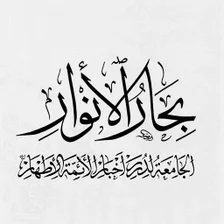 بِحَارُ الْأَنْوَارِ
الْجَامِعَةُ لِدُرَرِ أَخْبَارِ الْأَئِمَّةِ الْأَطْهَارِ